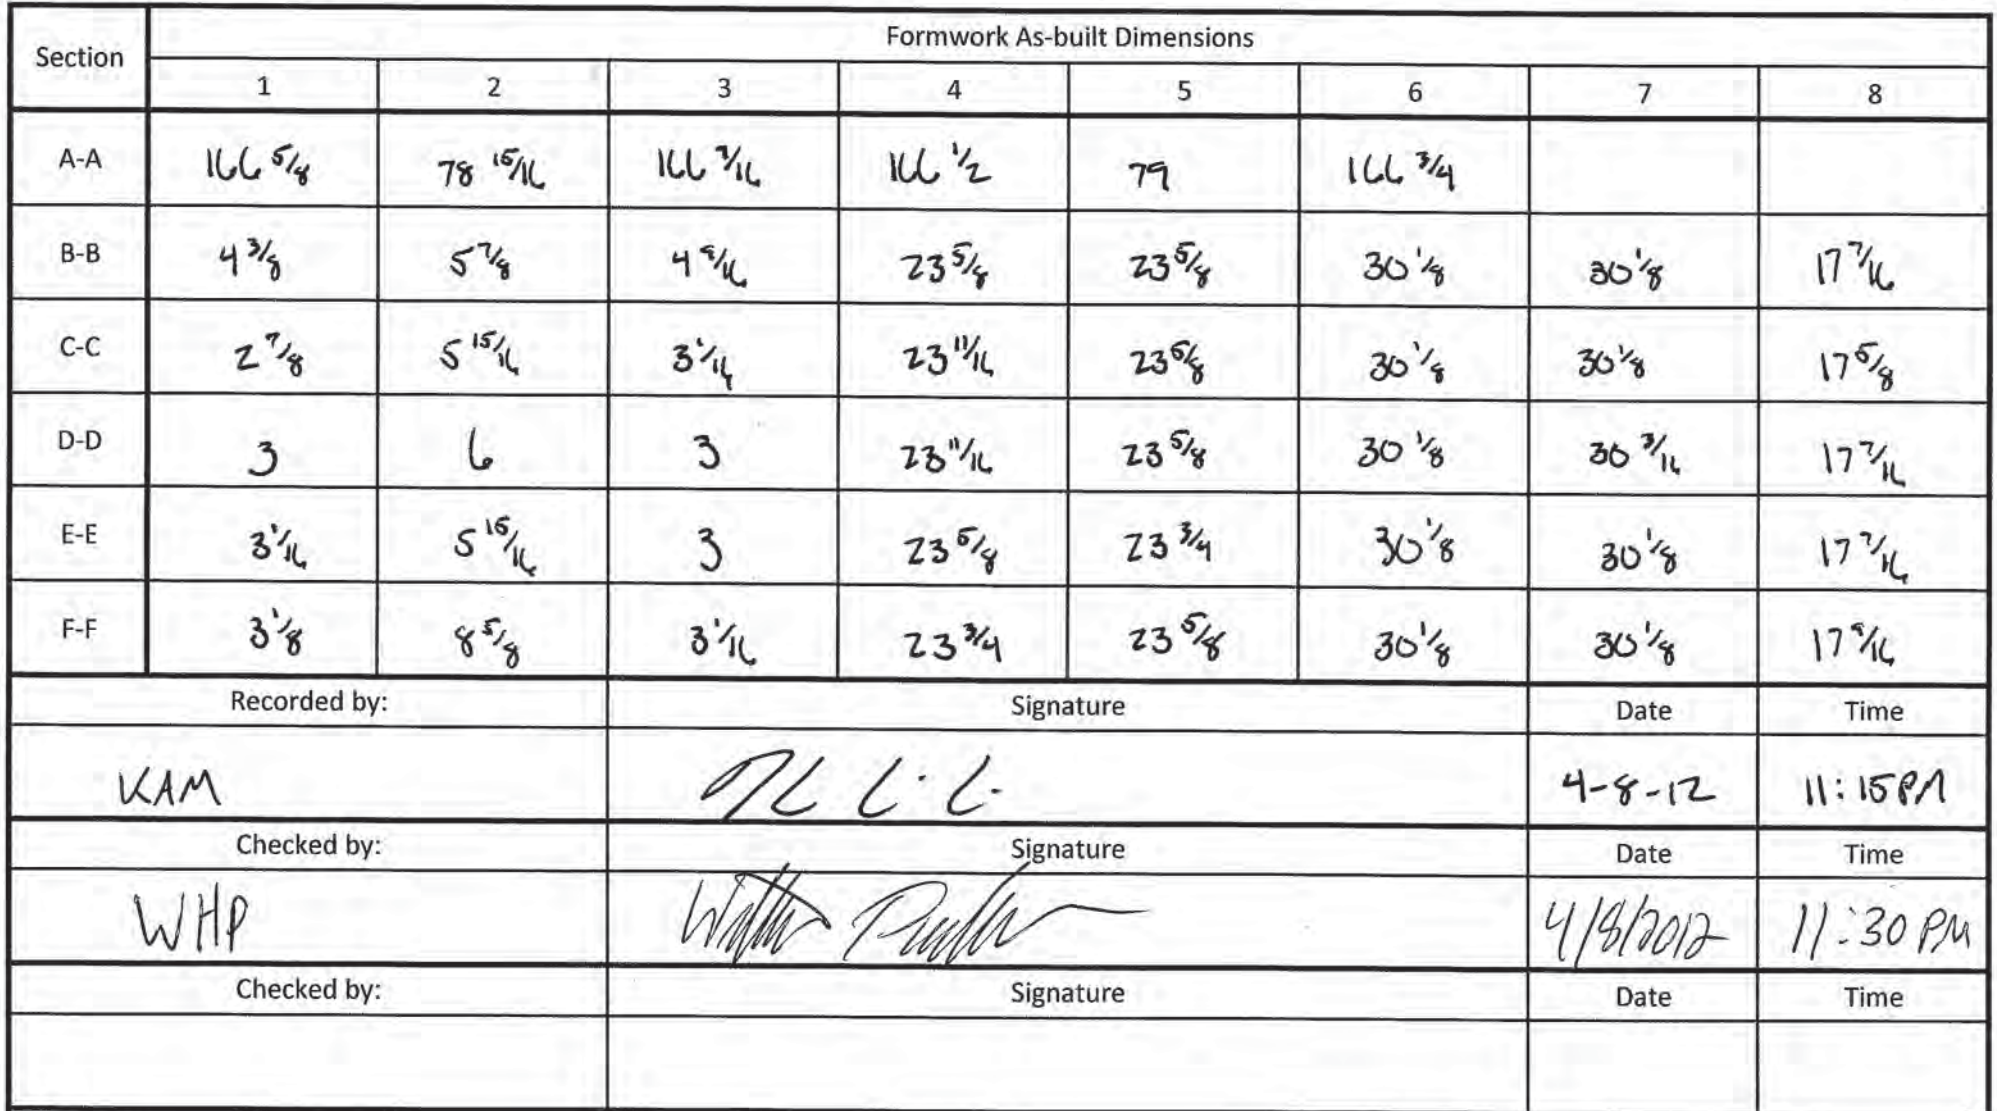 Formwork As-built Dimensions
Section
1 2 3 4 5 6 7 8
A-A 166 5/8 78 15/16 166 3/16 166 1/2 79 166 3/4
B-B 4 3/8 5 7/8 4 9/16 23 5/8 23 5/8 30 1/8 30 1/8 17 7/16
C-C 2 7/8 5 15/16 3 1/16 23 11/16 23 5/8 30 1/8 30 1/8 17 5/8
D-D 3 6 3 23 11/16 23 5/8 30 1/8 30 3/16 17 7/16
E-E 3 1/16 5 15/16 3 23 5/8 23 3/4 30 1/8 30 1/8 17 7/16
F-F 3 1/8 8 5/8 3 1/16 23 3/4 23 5/8 30 1/8 30 1/8 17 9/16
Recorded by: Signature Date Time
KAM 4-8-12 11:15 PM
Checked by: Signature Date Time
WHP 4/8/2012 11:30 PM
Checked by: Signature Date Time